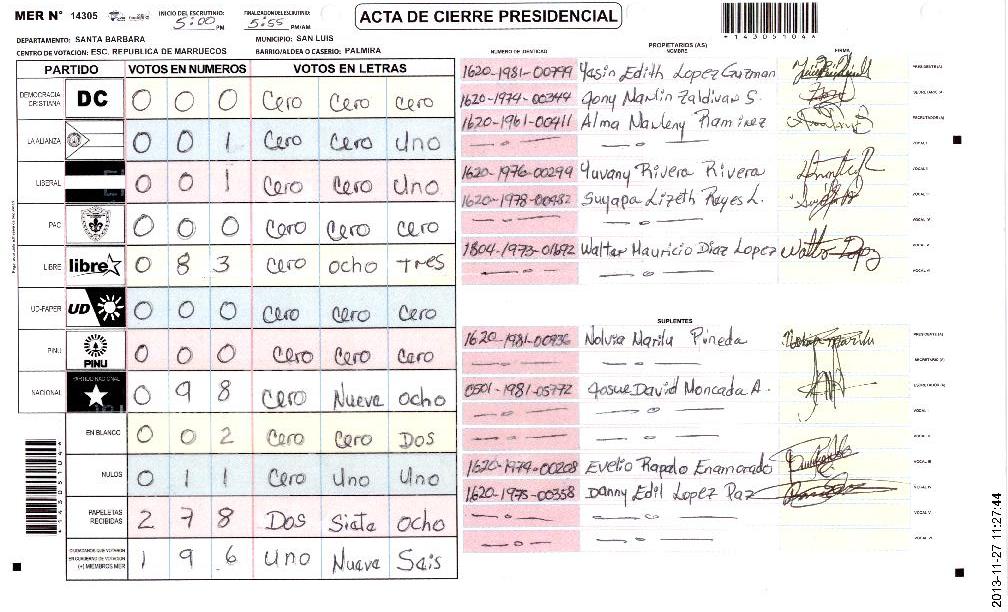 MER N° 14305 INICIO DEL ESCRUTINIO: 5:00 PM FINALIZACION DEL ESCRUTINIO: 5:55 PM/AM
ACTA DE CIERRE PRESIDENCIAL
*14305104*
DEPARTAMENTO: SANTA BARBARA MUNICIPIO: SAN LUIS
CENTRO DE VOTACION: ESC. REPUBLICA DE MARRUECOS BARRIO/ALDEA O CASERIO: PALMIRA
PARTIDO VOTOS EN NUMEROS VOTOS EN LETRAS
DEMOCRACIA CRISTIANA DC 0 0 0 Cero Cero Cero
LA ALIANZA 0 0 1 Cero Cero Uno
LIBERAL 0 0 1 Cero Cero Uno
PAC 0 0 0 Cero Cero Cero
LIBRE libre 0 8 3 Cero ocho Tres
UD-FAPER UD 0 0 0 Cero Cero Cero
PINU PINU 0 0 0 Cero Cero Cero
NACIONAL PARTIDO NACIONAL 0 9 8 Cero Nueve ocho
EN BLANCO 0 0 2 Cero Cero Dos
NULOS 0 1 1 Cero Uno Uno
PAPELETAS RECIBIDAS 2 7 8 Dos Siete ocho
CIUDADANOS QUE VOTARON EN CUADERNO DE VOTACION (+) MIEMBROS MER 1 9 6 Uno Nueve Seis
NUMERO DE IDENTIDAD PROPIETARIOS (AS) NOMBRE FIRMA
1620-1981-00799 Yasin Edith Lopez Guzman PRESIDENTE(A)
1620-1974-00344 Jony Marlin Zaldivar S. SECRETARIO (A)
1620-1961-00411 Alma Marleny Ramirez ESCRUTADOR (A)
VOCAL I
1620-1976-00299 Yuvany Rivera Rivera VOCAL II
1620-1978-00482 Suyapa Lizeth Reyes L. VOCAL III
VOCAL IV
1804-1973-01692 Walter Mauricio Diaz Lopez VOCAL V
VOCAL VI
SUPLENTES
1620-1981-00936 Nolvia Marilu Pineda PRESIDENTE(A)
SECRETARIO (A)
0501-1981-05772 Josue David Moncada A. ESCRUTADOR (A)
VOCAL I
VOCAL II
1620-1979-00208 Evelio Rapalo Enamorado VOCAL III
1620-1975-00358 Danny Edil Lopez Paz VOCAL IV
VOCAL V
VOCAL VI
2013-11-27 11:27:44